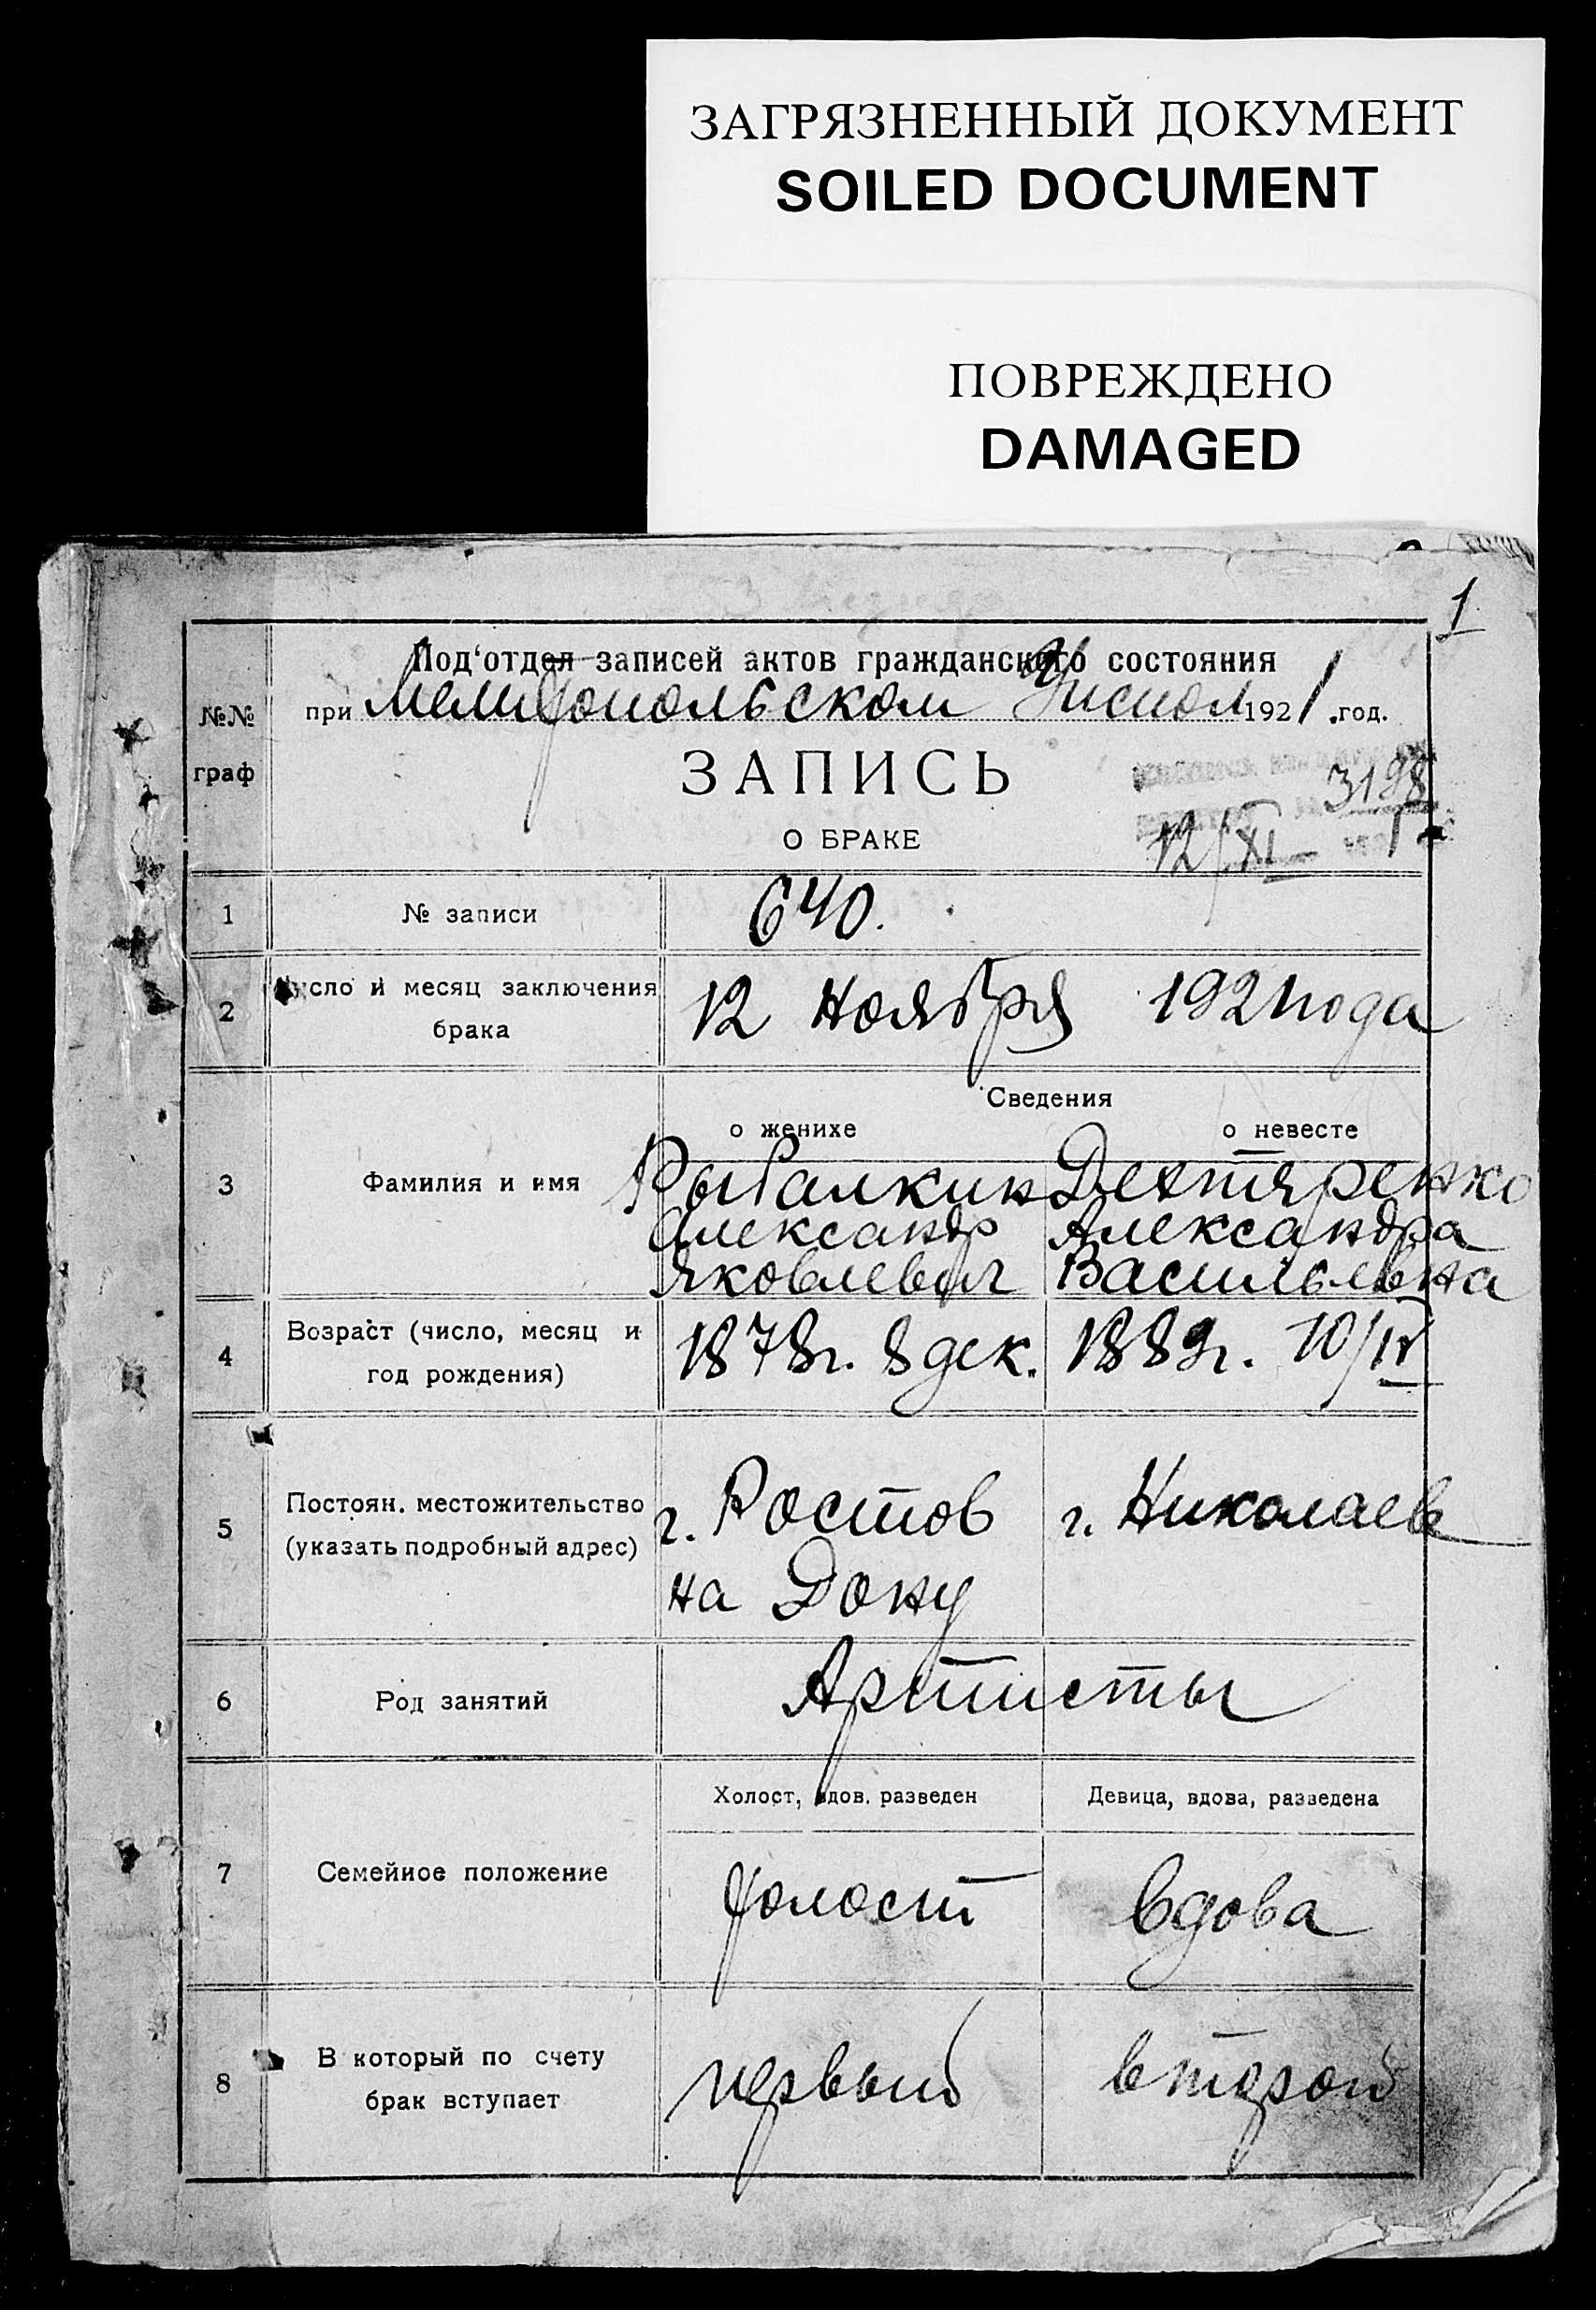 ЗАГРЯЗНЕННЫЙ ДОКУМЕНТ
SOILED DOCUMENT
ПОВРЕЖДЕНО
DAMAGED
1
Под'отдел записей актов гражданского состояния
№№ граф
при Мелитопольском Уисполк 1921 .год.
ЗАПИСЬ
3198
О БРАКЕ
12/XI 1
1 № записи 640.
2 Число и месяц заключения брака 12 Ноября 1921 года
Сведения
о женихе о невесте
3 Фамилия и имя Рыбалкин Дехтяренко
Александр Александра
Яковлевич Васильевна
4 Возраст (число, месяц и год рождения) 1878г. 8 дек. 1889г. 10/IV
5 Постоян. местожительство г. Ростов г. Николаев
(указать подробный адрес) на Дону
6 Род занятий Артисты
Холост, вдов, разведен Девица, вдова, разведена
7 Семейное положение холост вдова
8 В который по счету брак вступает первый второй